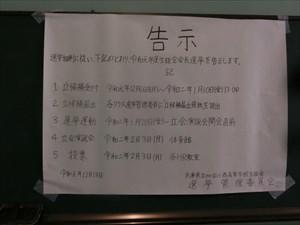 告示
選挙細則に従い、下記のとおり、令和元年度生徒会会長選挙を告示します。
記
1 立候補受付 令和元年12月18日〜令和二年1月10日金17:00
2 立候補届出 各クラス選挙管理委員に立候補届出用紙を提出
3 選挙運動 令和二年1月 〜立会演説会開会直前
4 立会演説会 令和二年2月3日(月) 体育館
5 投票 令和二年2月3日(月) 各HR教室
令和元年12月18日
兵庫県立 西高等学校生徒会
選挙管理委員会